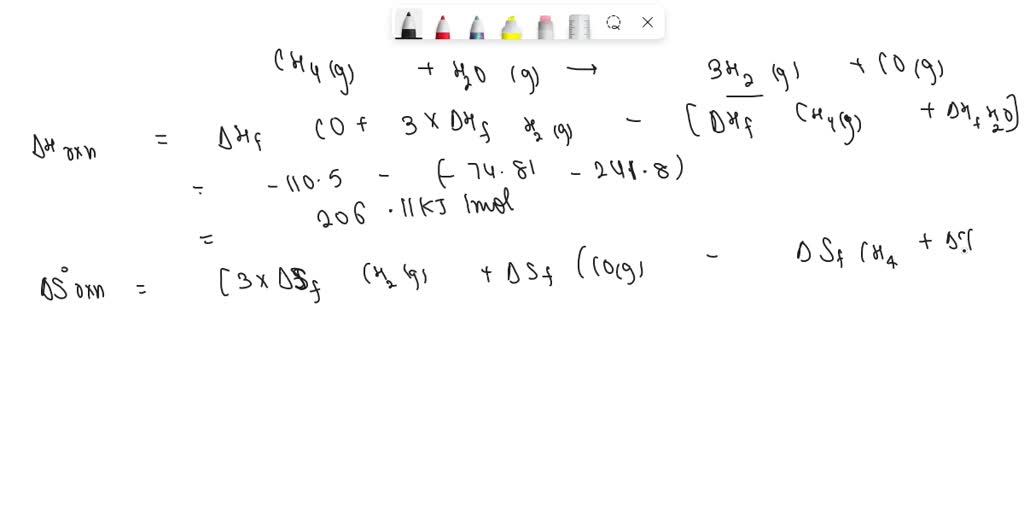 CH4(g) + H2O (g) → 3H2 (g) + CO(g)
ΔHrxn = ΔHf CO + 3 × ΔHf H2(g) - [ΔHf CH4(g) + ΔHf H2O]
= -110.5 - (-74.81 - 241.8)
= 206.11KJ /mol
ΔS°rxn = [3×ΔSf (H2(g) + ΔSf (CO(g) - ΔSf CH4 + ΔS(